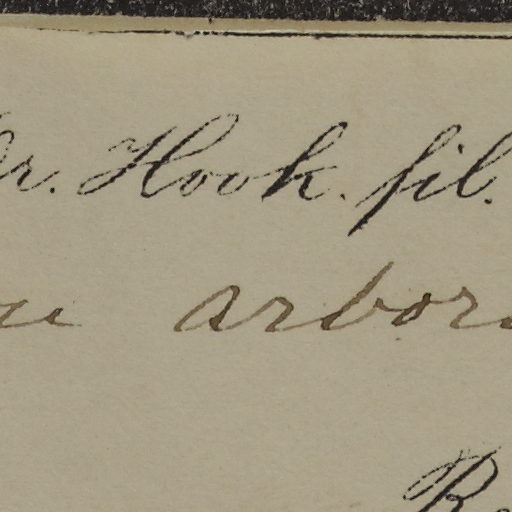 Dr. Hook. fil.
arbor